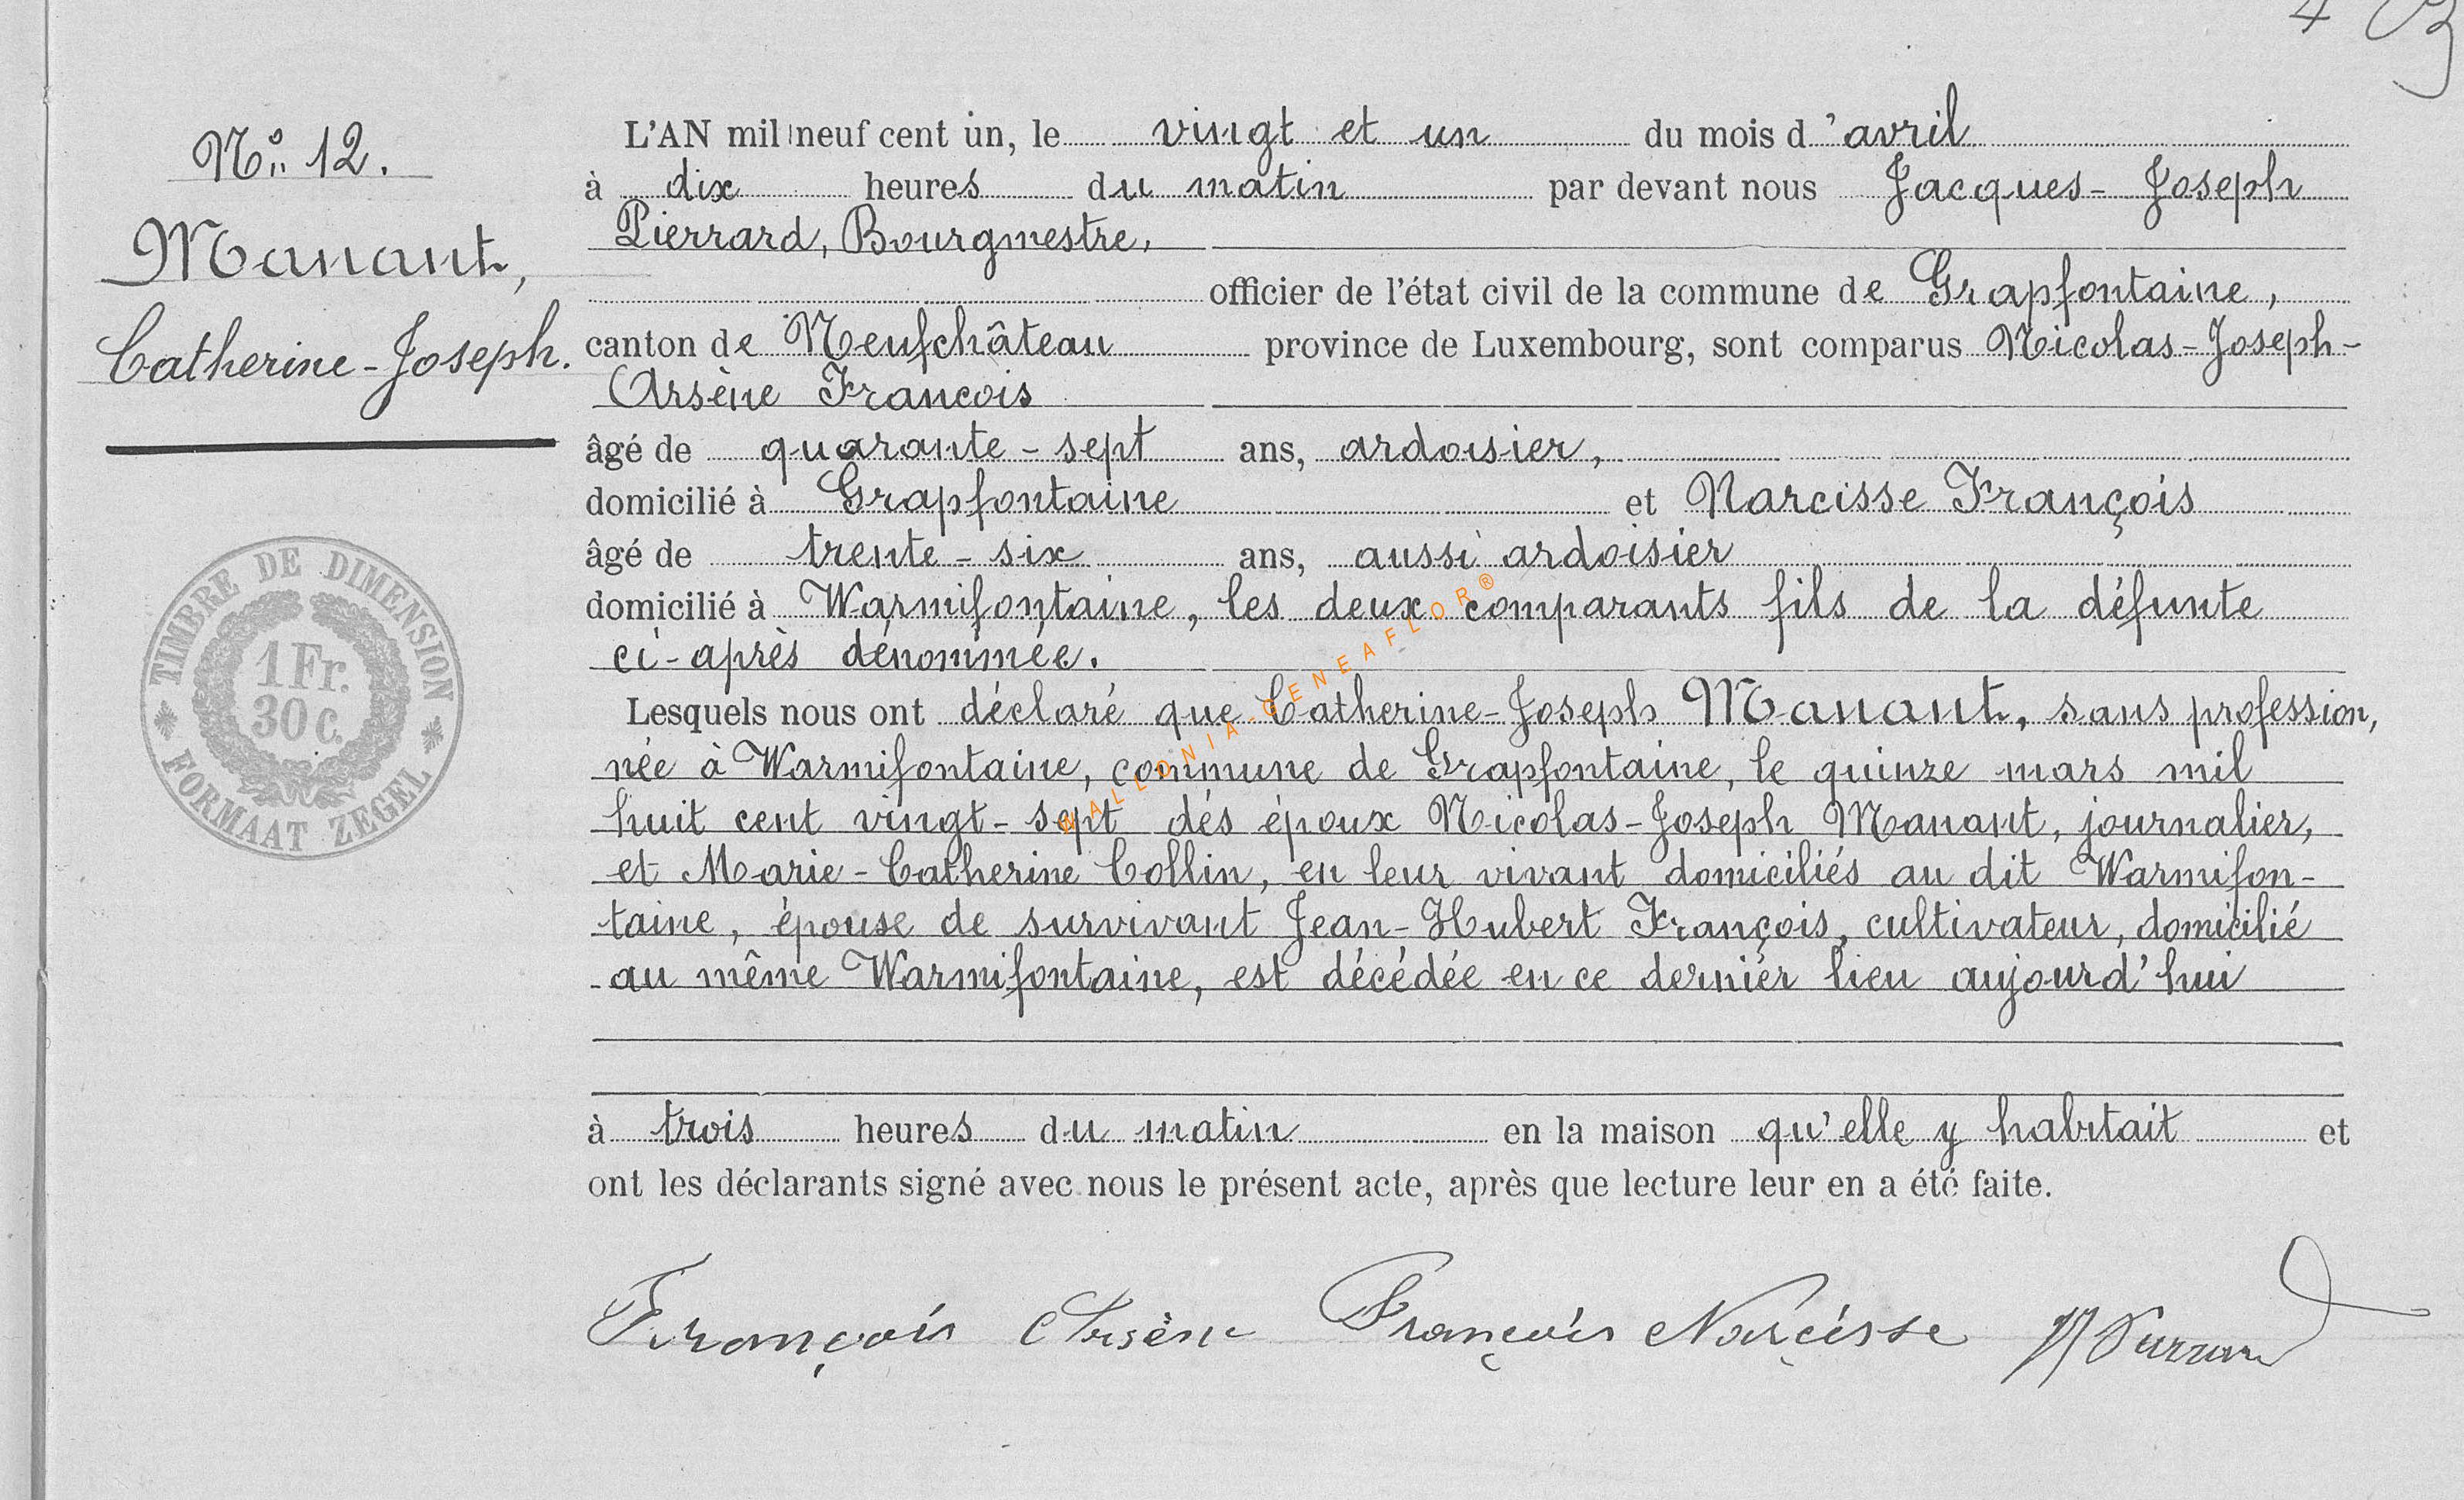 4
N° 12.
Manant,
Catherine-Joseph.
TIMBRE DE DIMENSION
1 Fr.
30 c.
FORMAAT ZEGEL
L'AN mil neuf cent un, le vingt et un du mois d'avril
à dix heures du matin par devant nous Jacques-Joseph
Pierrard, Bourgmestre,
officier de l'état civil de la commune de Grapfontaine,
canton de Neufchâteau province de Luxembourg, sont comparus Nicolas-Joseph-
Arsène Francois
âgé de quarante-sept ans, ardoisier,
domicilié à Grapfontaine et Narcisse François
âgé de trente-six ans, aussi ardoisier
domicilié à Warmifontaine, les deux comparants fils de la défunte
ci-après dénommée.
Lesquels nous ont déclaré que Catherine-Joseph Manant, sans profession,
née à Warmifontaine, commune de Grapfontaine, le quinze mars mil
huit cent vingt-sept dés époux Nicolas-Joseph Manant, journalier,
et Marie-Catherine Collin, en leur vivant domiciliés au dit Warmifon-
taine, épouse de survivant Jean-Hubert François, cultivateur, domicilié
au même Warmifontaine, est décédée en ce dernier lieu aujourd'hui
à trois heures du matin en la maison qu'elle y habitait et
ont les déclarants signé avec nous le présent acte, après que lecture leur en a été faite.
François Arsène François Narcisse JJ Pierrard
WALLONIA-GENEAFLOR®